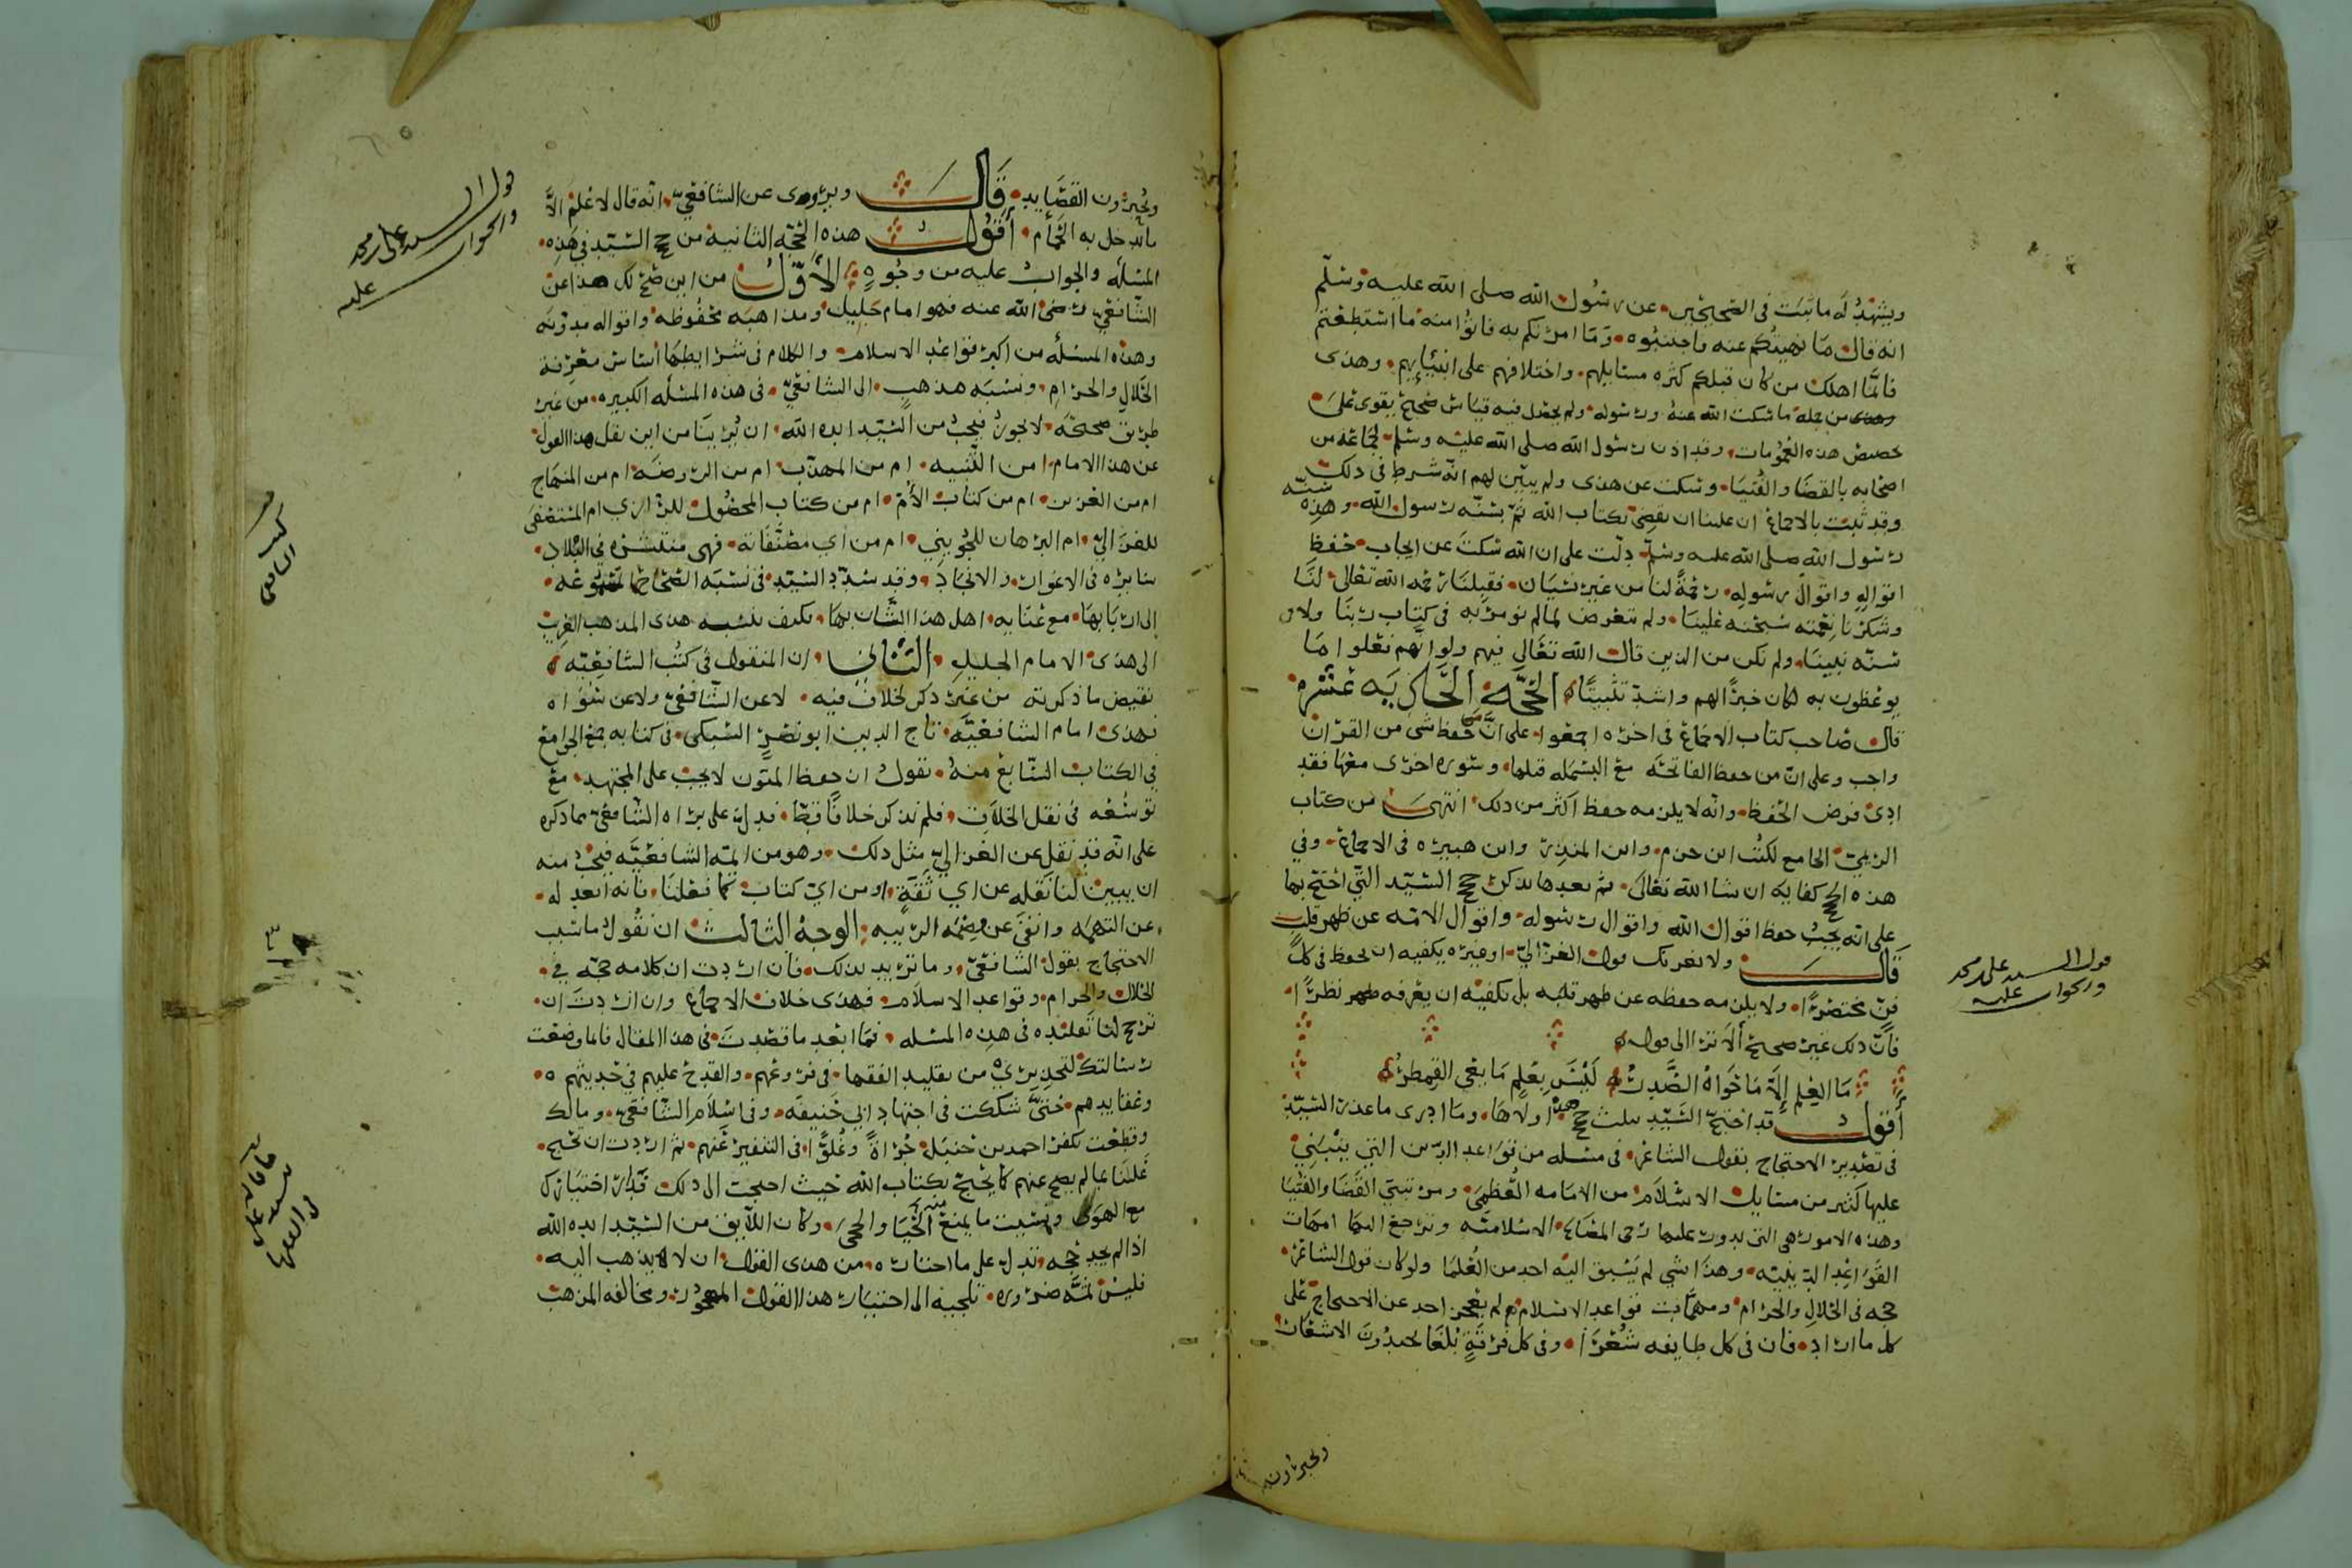 ويشهد له ما ثبت في الصحيحين عن رسول الله صلى الله عليه وسلم
انه قال ما نهيتكم عنه فاجتنبوه وما امرتكم به فاتوا منه ما استطعتم
فانما اهلك من كان قبلكم كثره مسايلهم واختلافهم على انبيايهم وهذى
من جمله ما سكت الله عنه ورسوله ولم يحصل فيه قياس صحيح يقوى على
تخصيص هذه العمومات وقد اذن رسول الله صلى الله عليه وسلم لجماعة من
اصحابه بالقضا والفتيا وسكت عن هذى ولم يبين لهم انه شرط في ذلك
وقد ثبت بالاجماع ان علينا ان نقضي بكتاب الله ثم بسنه رسول الله وهذه سنه
رسول الله صلى الله عليه وسلم دلت على ان الله سكت عن ايجاب حفظ
اقواله واقوال رسوله رحمة لنا من غير نسيان فقبلنا رحمه الله تعالى لنا
وشكرنا نعمته سبحنه علينا ولم نتعرض لما لم نومر به في كتاب ربنا ولا
سنه نبينا ولم نكن من الذين قال الله تعالى فيهم ولو انهم فعلوا ما
يوعظون به لكان خيرا لهم واشد تثبيتا الحجة الحاديه عشره
قال صاحب كتاب الاجماع في اخره اجمعوا على ان حفظ شي من القران
واجب وعلى ان من حفظ الفاتحه مع البسمله قبلها وسوره اخرى معها فقد
ادى فرض الحفظ وانه لا يلزمه حفظ اكثر من ذلك انتهى من كتاب
الريمي الجامع لكتب ابن حزم وابن المنذر وابن هبيره في الاجماع وفي
هذه الحجج كفايه ان شا الله تعالى ثم بعدها نذكر حجج السيد التي احتج بها
على انه يجب حفظ اقوال الله واقوال رسوله واقوال الامه عن ظهر قلب
قال ولا يغرنك قول الغزالي او غيره يكفيه ان يحفظ في كل
فن مختصرا ولا يلزمه حفظه عن ظهر قلبه بل يكفيه ان يعرفه نظرا
فان ذلك غير صحيح الا ترا الى قوله
ما العلم الا ما حواه الصدر ليس بعلم ما يعي القمطر
اقول قد احتج السيد بثلث حجج هذه اولاها وما ادرى ما عذر السيد
في تصدير الاحتجاج بقول الشاعر في مسله من قواعد الدين التي ينبني
عليها كثير من مسايل الاسلام من الامامه العظمى ومرتبتي القضا والفتيا
وهذه الامور هي التي يدور عليها رحى المصالح الاسلاميه وترجع اليها امهات
القواعد الدينيه وهذا شي لم يسبق اليه احد من العلما ولو كان قول الشاعر
حجه في الحلال والحرام ومهمات قواعد الاسلام لم يعجز احد عن الاحتجاج على
كل ما اراد فان في كل طايفه شعرا وفي كل فرقة بلغا يجيدون الاشعار
ويحبرون
قول السيد علي بن محمد
والجواب عليه
ويحبرون القصايد قال ويروى عن الشافعي انه قال لا علم الا
ما تدخل به الحمام اقول هذه الحجه الثانيه من حجج السيد في هذه
المسله والجواب عليه من وجوه الاول من اين صح لك هذا عن
الشافعي رضي الله عنه فهو امام جليل ومذاهبه محفوظه واقواله مدونه
وهذه المسله من اكبر قواعد الاسلام والكلام في شرايطها اساس معرفة
الحلال والحرام ونسبه مذهب الى الشافعي في هذه المسله الكبيره من غير
طريق صحيحه لا يجوز فيجب من السيد ايده الله ان يرينا من اين نقل هذا القول
عن هذا الامام امن التنبيه ام من المهذب ام من الروضه ام من المنهاج
ام من العزيز ام من كتاب الام ام من كتاب المحصول للرازي ام المستصفى
للغزالي ام البرهان للجويني ام من اي مصنفاته فهي منتشره في البلاد
سايره في الاغوار والانجاد وقد شدد السيد في نسبه الصحاح
الى اربابها مع عنايه اهل هذا الشان بها فكيف ينسب هذى المذهب الغريب
الى هذى الامام الجليل الثاني ان المنقول في كتب الشافعيه
نقيض ما ذكرته من غير ذكر لخلاف فيه لا عن الشافعي ولا عن سواه
فهذى امام الشافعيه تاج الدين ابو نصر السبكى في كتابه جمع الجوامع
في الكتاب السابع منه يقول ان حفظ المتون لا يجب على المجتهد مع
توسعه في نقل الخلاف فلم يذكر خلافا قط فدل على براه الشافعي مما ذكره
على انه قد نقل عن الغزالي مثل ذلك وهو من ايمه الشافعيه فيجب منه
ان يبين لنا نقله عن اي ثقة او من اي كتاب كما فعلنا فانه ابعد له
عن التهمه وانفى عن الريبه الوجه الثالث ان نقول ما سبب
الاحتجاج بقول الشافعي وما تريد بذلك فان اردت ان كلامه حجه في
الحلال والحرام وقواعد الاسلام فهذى خلاف الاجماع وان اردت ان
ترجح لنا تقليده في هذه المسله فما ابعد ما قصدت في هذا المقال فانما وضعت
رسالتك لتحذيري من تقليد الفقها في فروعهم والقدح عليهم في حديثهم
وعقايدهم حتى شككت في اجتهاد ابي حنيفه وفي اسلام الشافعي ومالك
وقطعت بكفر احمد بن حنبل جراة وغلوا في التنفير عنهم ثم اردت ان تحتج
علينا بما لم يصح عنهم كما يحتج بكتاب الله حيث احتجت الى ذلك
مع الهوى ونسيت ما يمنع منه الحيا والحجى وكان اللايق من السيد ايده الله
اذا لم يجد حجه تدل على ما اختاره من هذى القول ان لا يذهب اليه
فليس ثمه ضروره تلجيه الى اختيار هذا القول المهجور ومخالفه المذهب
قول السيد علي بن محمد
والجواب عليه
كتب
الشافعي